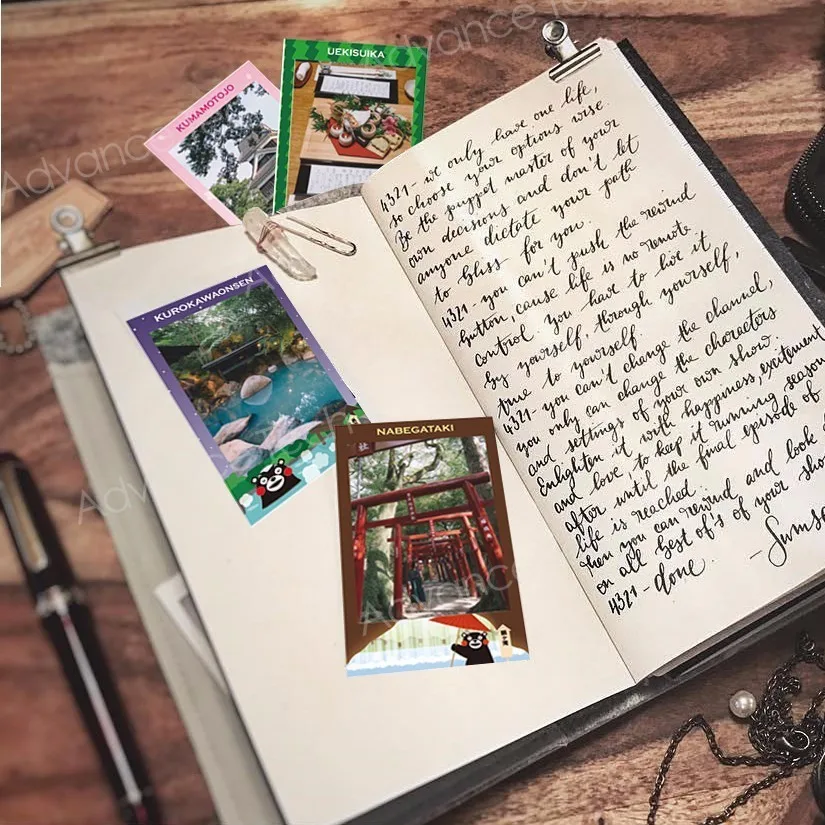 UEKISUIKA
KUMAMOTOJO
KUROKAWAONSEN
NABEGATAKI
4321 - we only have one life,
so choose your options wise.
Be the puppet master of your
own decisions and don't let
anyone dictate your path
to bliss for you.
4321 - you can't push the rewind
button, cause life is no remote
control. You have to live it
by yourself, through yourself,
true to yourself.
4321 - you can't change the channel,
you only can change the characters
and settings of your own show.
Enlighten it with happiness, excitement
and love to keep it running season
after until the final episode of
life is reached.
Then you can rewind and look
on all best of's of your sho
4321 - done.
Advance
Advance
Advance
Advance